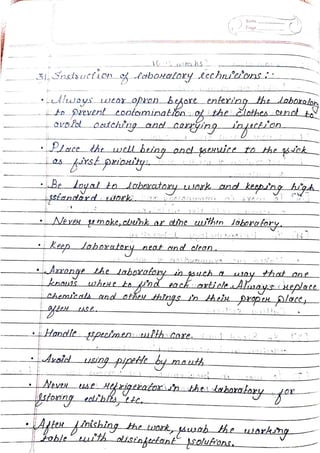 3). Instruction of laboratory technicians :-
• Always wear apron before entering the laboratory
to prevent contamination of the clothes and to
avoid catching and carrying infection.
• Place the well being and service to the sick
as first priority.
• Be loyal to laboratory work and keeping high
standard work.
• Never smoke, drink or dine within laboratory.
• Keep laboratory neat and clean.
• Arrange the laboratory in such a way that one
knows where to find each article. Always replace
chemicals and other things in their proper place,
after use.
• Handle specimen with care.
• Avoid using pipette by mouth
• Never use refrigerator in the laboratory for
storing edibles, etc.
• After finishing the work, swab the working
table with disinfectant solutions.